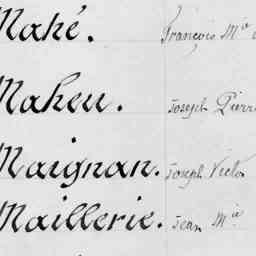 Mahé. François Mie
Maheu. Joseph Pierre
Maignan. Joseph Victo
Maillerie. Jean Mie